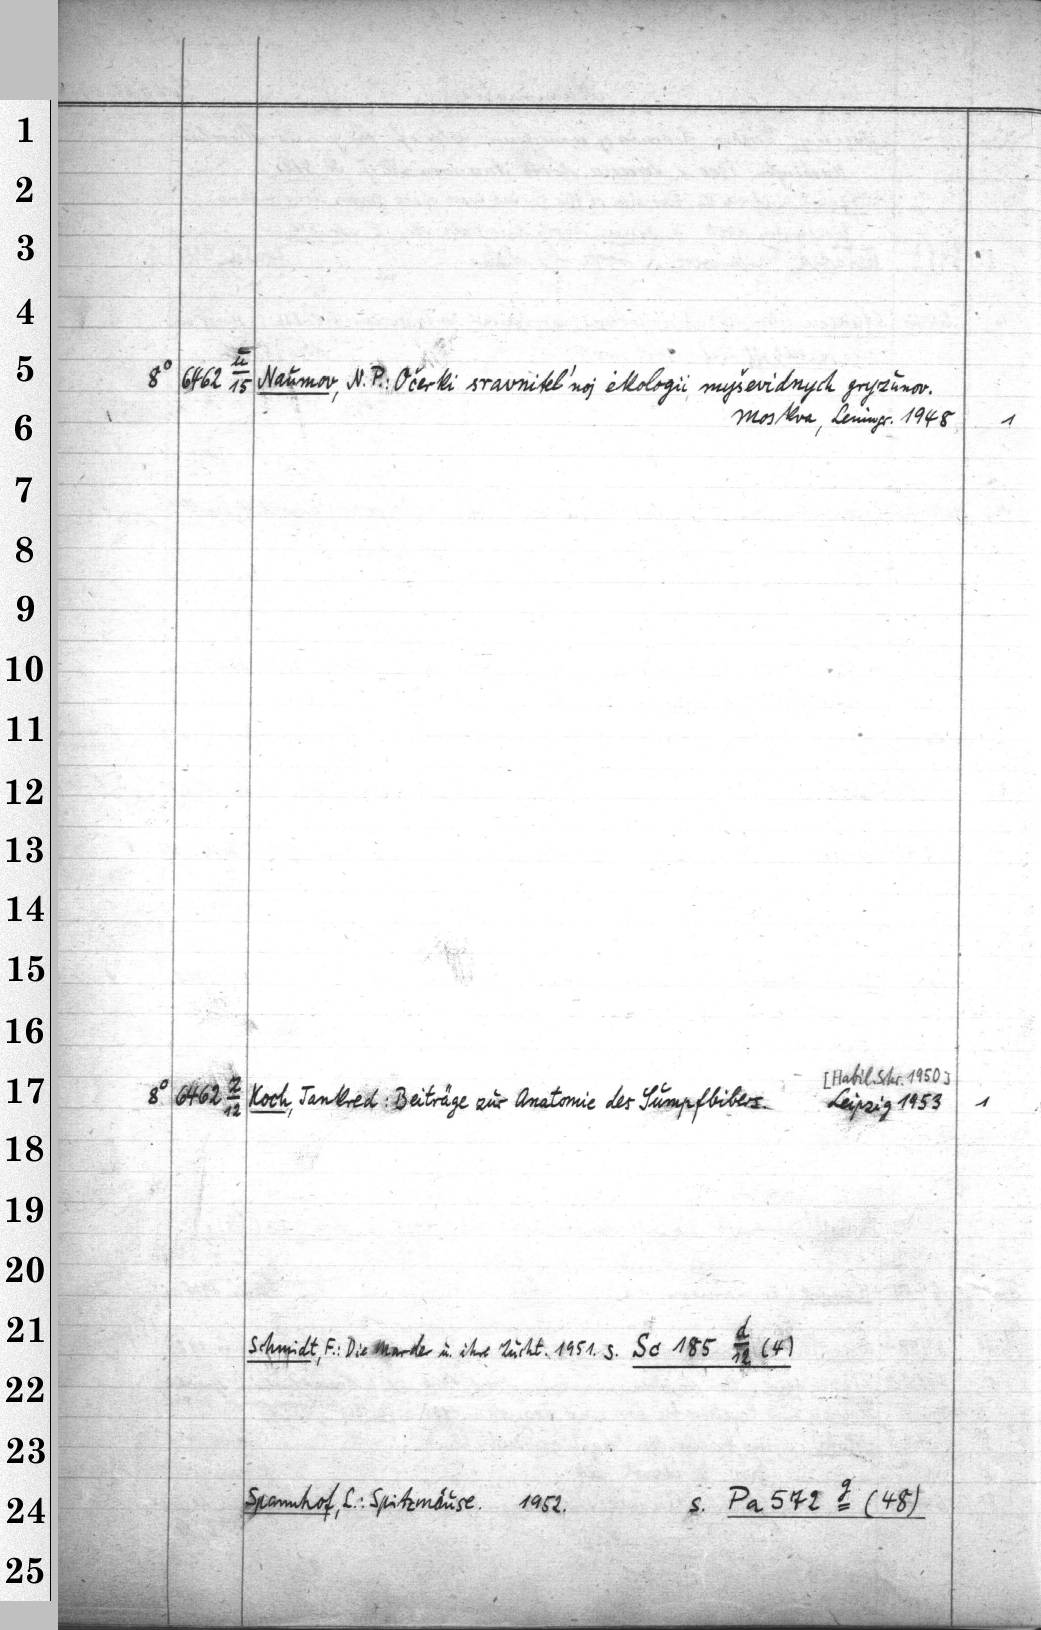 1
2
3
4
5 8° 6462 ü/15 Naumov, N. P.: Očerki sravnitel'noj ėkologii myševidnych gryzunov.
6 Moskva, Leningr. 1948 1
7
8
9
10
11
12
13
14
15
16
[Habil. Schr. 1950]
17 8° 6462 z/12 Koch, Tankred: Beiträge zur Anatomie des Sumpfbibers. Leipzig 1953 1
18
19
20
21 Schmidt, F.: Die Marder u. ihre Zucht. 1951. s. Sc 185 d/12 (4)
22
23
24 Spannhof, L.: Spitzmäuse. 1952. s. Pa 572 g (48)
25